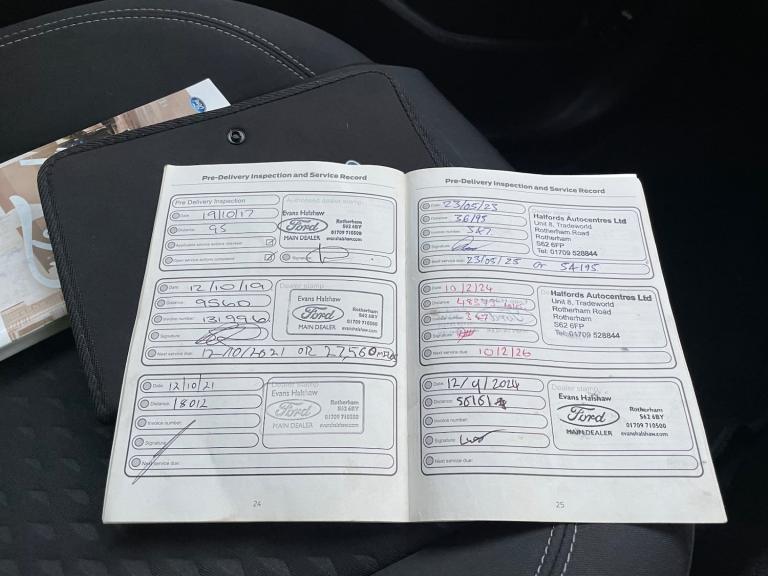 Pre-Delivery Inspection and Service Record
Pre Delivery Inspection
Authorised dealer stamp
Date 19/10/17
Distance: 95
Applicable service actions checked
Open service actions completed
Signature
Evans Halshaw
Ford
MAIN DEALER
Rotherham
S62 6BY
01709 710500
evanshalshaw.com
Date: 12/10/19
Distance: 9560
Invoice number: 131996
Signature:
Next service due: 12/10/2021 OR 27,560 MILES
Dealer stamp
Evans Halshaw
Ford
MAIN DEALER
Rotherham
S62 6BY
01709 710500
evanshalshaw.com
Date: 12/10/21
Distance: 18012
Invoice number:
Signature:
Next service due:
Dealer stamp
Evans Halshaw
Ford
MAIN DEALER
Rotherham
S62 6BY
01709 710500
evanshalshaw.com
24
Pre-Delivery Inspection and Service Record
Date: 23/05/23
Distance: 36195
Invoice number: 347
Signature:
Next service due: 23/05/25 or 54195
Halfords Autocentres Ltd
Unit 8, Tradeworld
Rotherham Road
Rotherham
S62 6FP
Tel: 01709 528844
Date: 10/2/24
Distance:
347
Signature:
Next service due: 10/2/26
Halfords Autocentres Ltd
Unit 8, Tradeworld
Rotherham Road
Rotherham
S62 6FP
Tel: 01709 528844
Date: 12/9/2024
Distance: 56161
Invoice number:
Signature:
Next service due:
Dealer stamp
Evans Halshaw
Ford
MAIN DEALER
Rotherham
S62 6BY
01709 710500
evanshalshaw.com
25